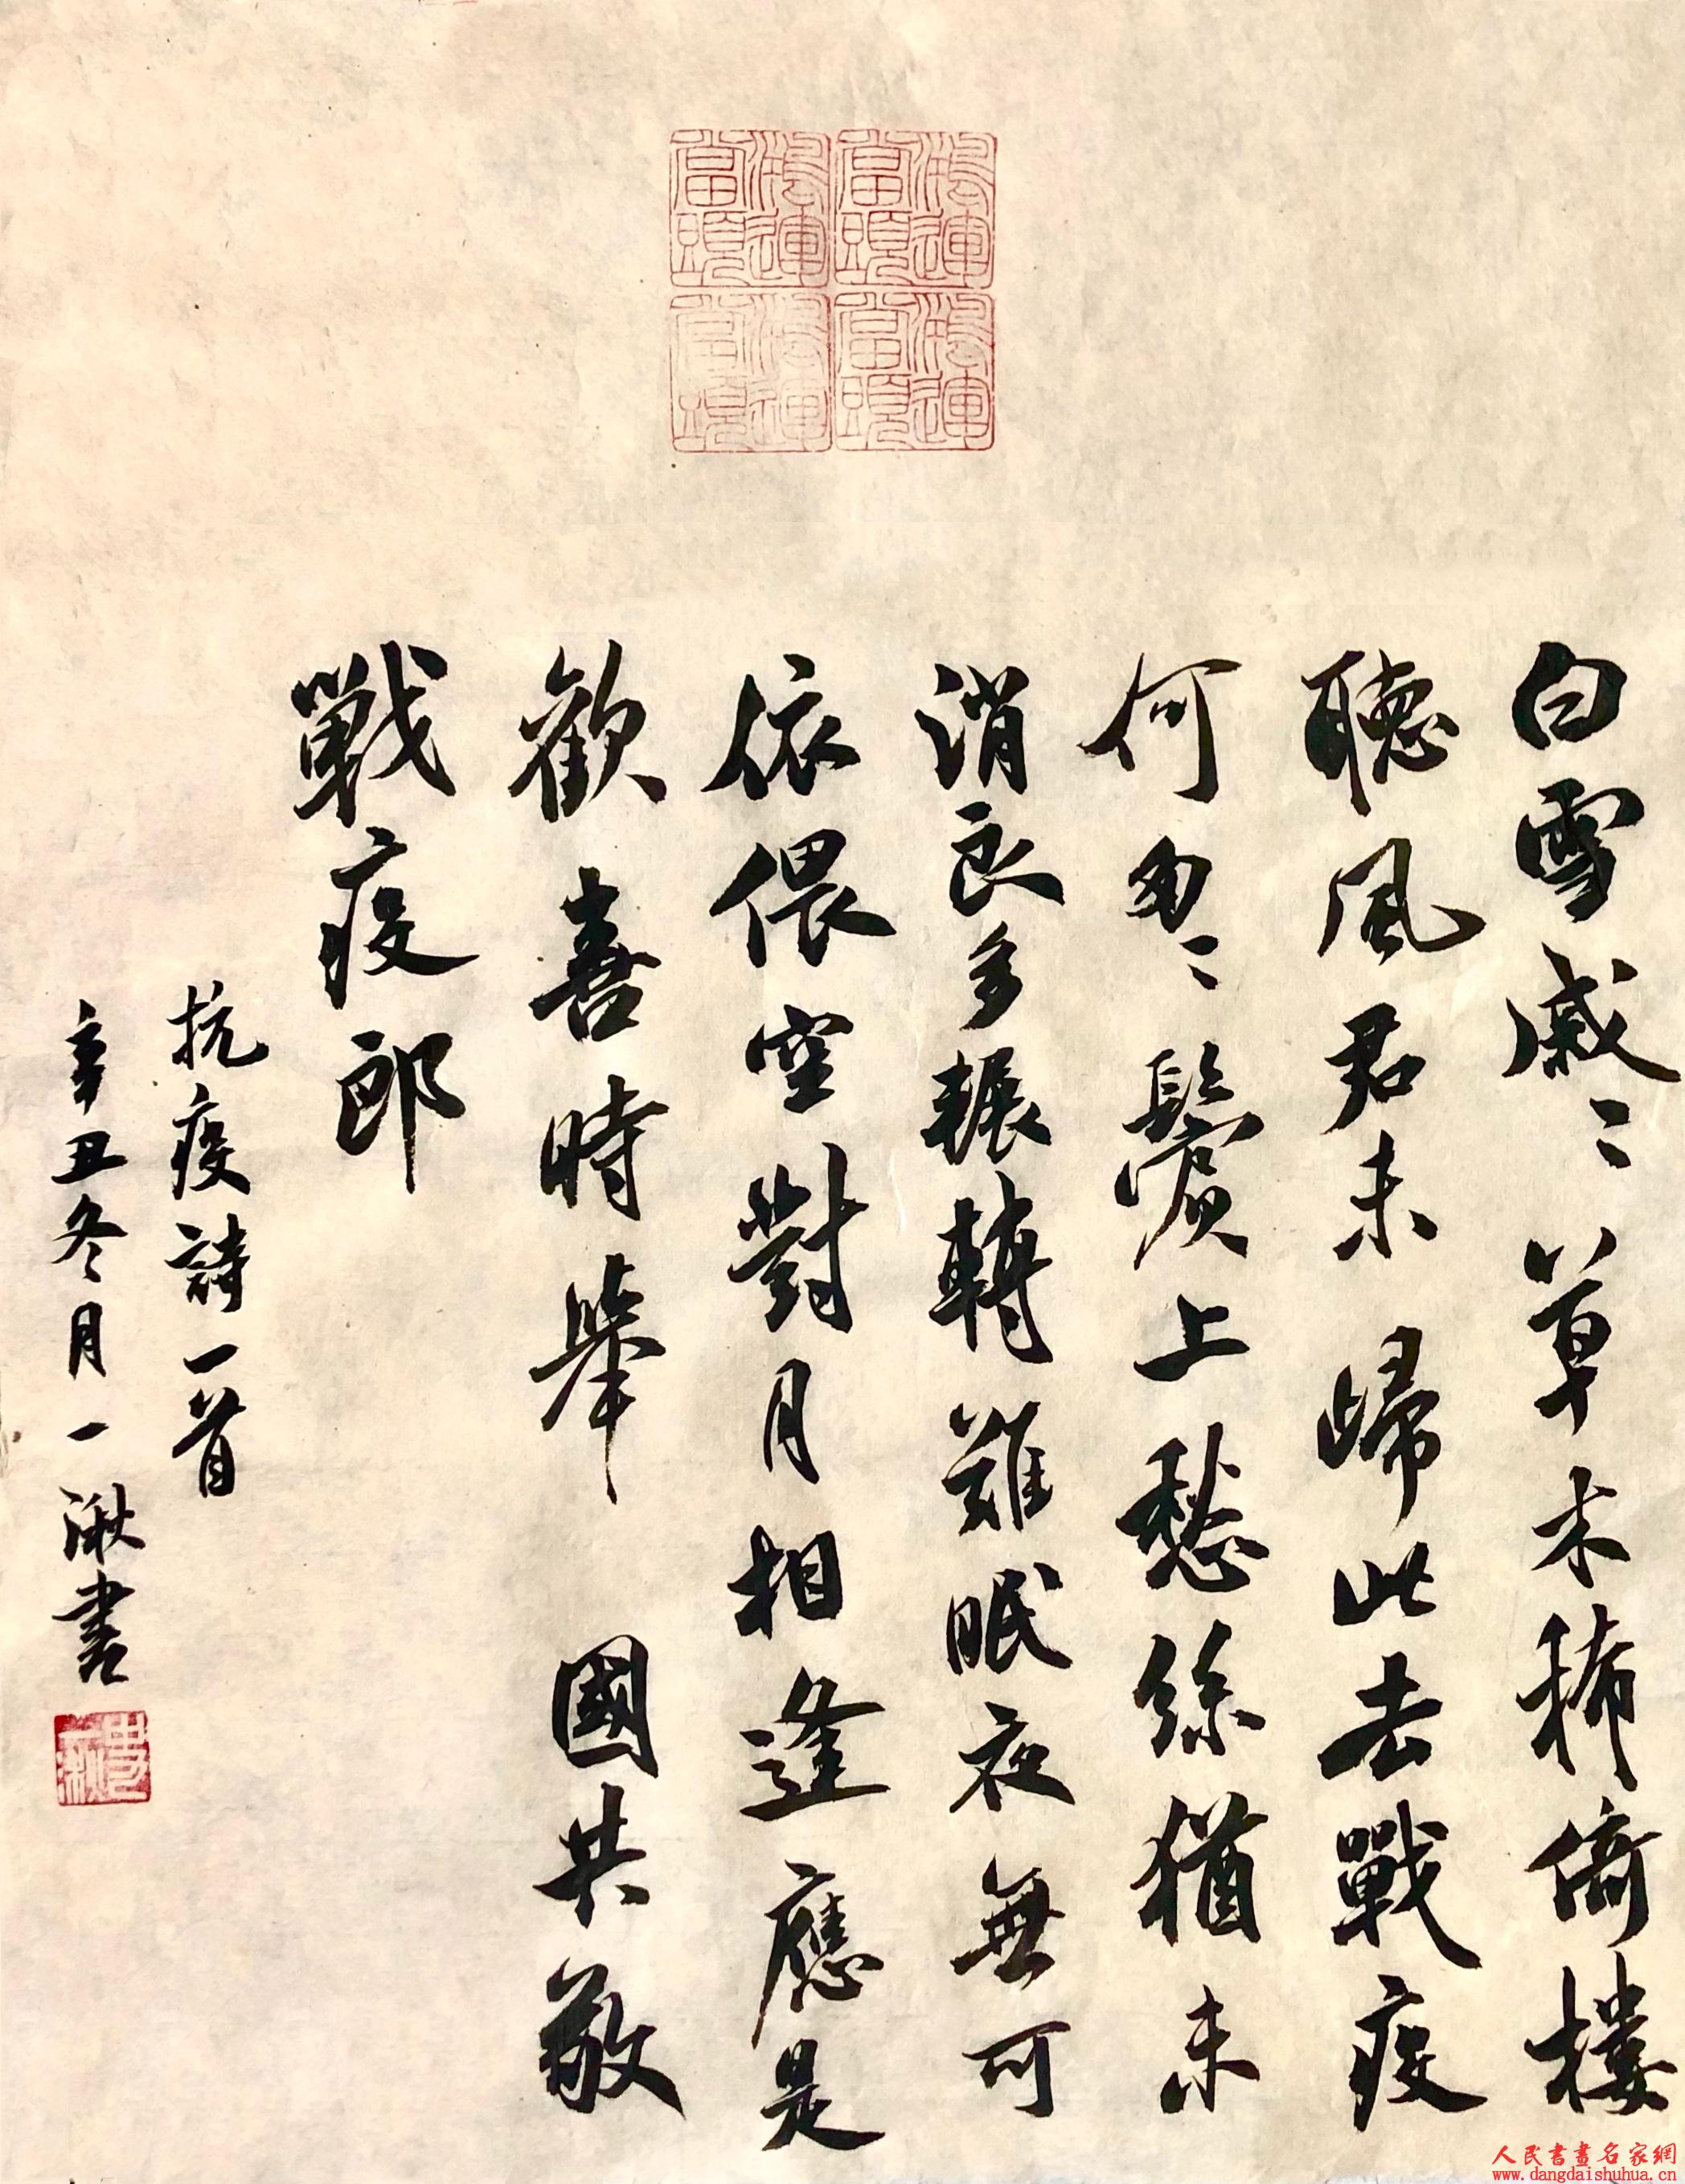 鴻運當頭 鴻運當頭
鴻運當頭 鴻運當頭
白雪戚〻草木稀倚樓
聽風君未歸此去戰疫
何匆〻鬢上愁絲猶未
消良多輾轉難眠夜無可
依偎空對月相逢應是
歡喜時舉 國共敬
戰疫郎
抗疫詩一首
辛丑冬月一湫書
人民書畫名家網
www.dangdaishuhua.cn